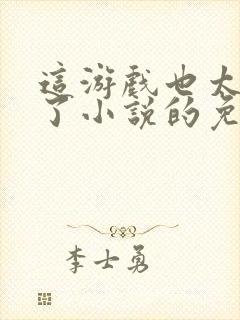 這游戲也太
了小說的免
李士勇